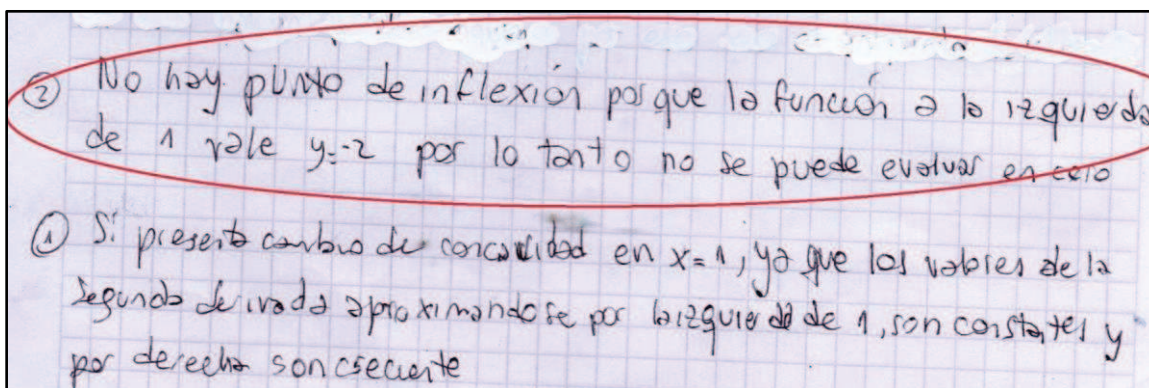 ② No hay punto de inflexión porque la función a la izquierda
de 1 vale y=-2 por lo tanto no se puede evaluar en cero
① Si presenta cambio de concavidad en x=1, ya que los valores de la
segunda derivada aproximandose por la izquierda de 1, son constantes y
por derecha son creciente